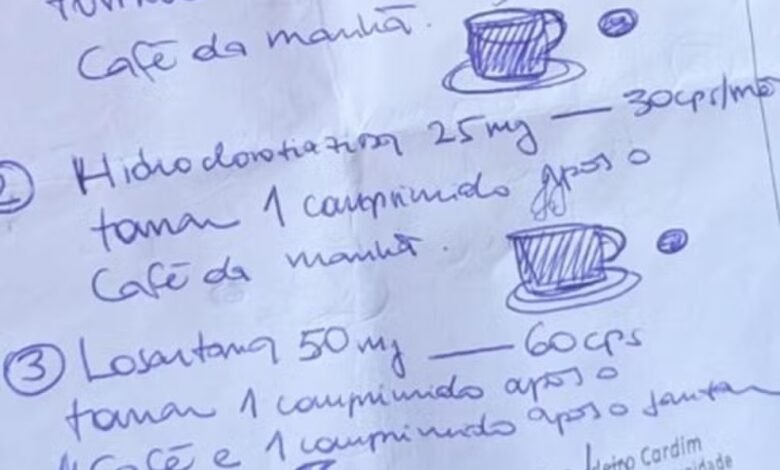 Café da manhã.
2 Hidroclorotiazida 25mg — 30cps/mê
tomar 1 comprimido após o
Café da manhã.
3 Losartana 50mg — 60cps
tomar 1 comprimido após o
Café e 1 comprimido após o jantar
Cardim
idade